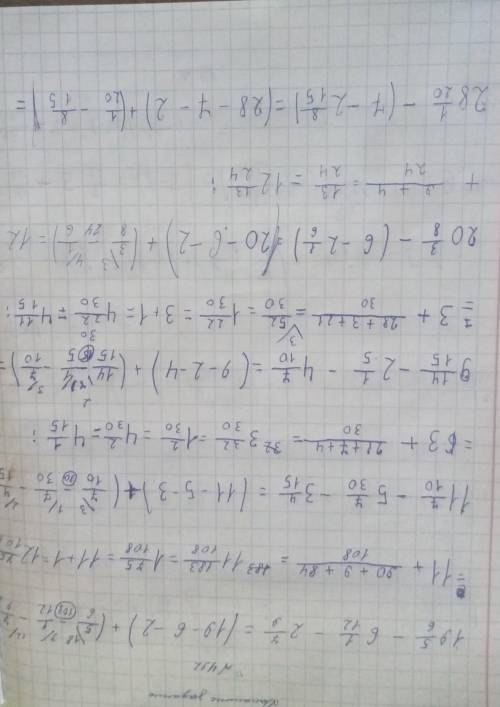 Домашнее задание
№492
19 5/6 - 6 1/12 - 2 7/9 = (19 - 6 - 2) + (5/6 - 1/12 - 7/9
= 11 + (90 + 9 + 84)/108 = 11 183/108 = 1 75/108 = 11 + 1 = 12 75/10
11 7/10 - 5 7/30 - 3 4/15 = (11 - 5 - 3) + (7/10 - 7/30 - 4/15
= 3 + (21 + 7 + 4)/30 = 3 32/30 = 1 2/30 = 4 2/30 = 4 1/15;
9 14/15 - 2 1/5 - 4 7/10 = (9 - 2 - 4) + (14/15 - 1/5 - 7/10) =
= 3 + (28 + 3 + 21)/30 = 3 52/30 = 1 22/30 = 3 + 1 = 4 22/30 = 4 11/15;
20 3/8 - (6 - 2 1/6) = (20 - 6 - 2) + (3/8 - 1/6) = 12
+ (9 + 4)/24 = 13/24 = 12 13/24;
28 1/20 - (7 - 2 8/15) = (28 - 7 - 2) + (1/20 - 8/15) =